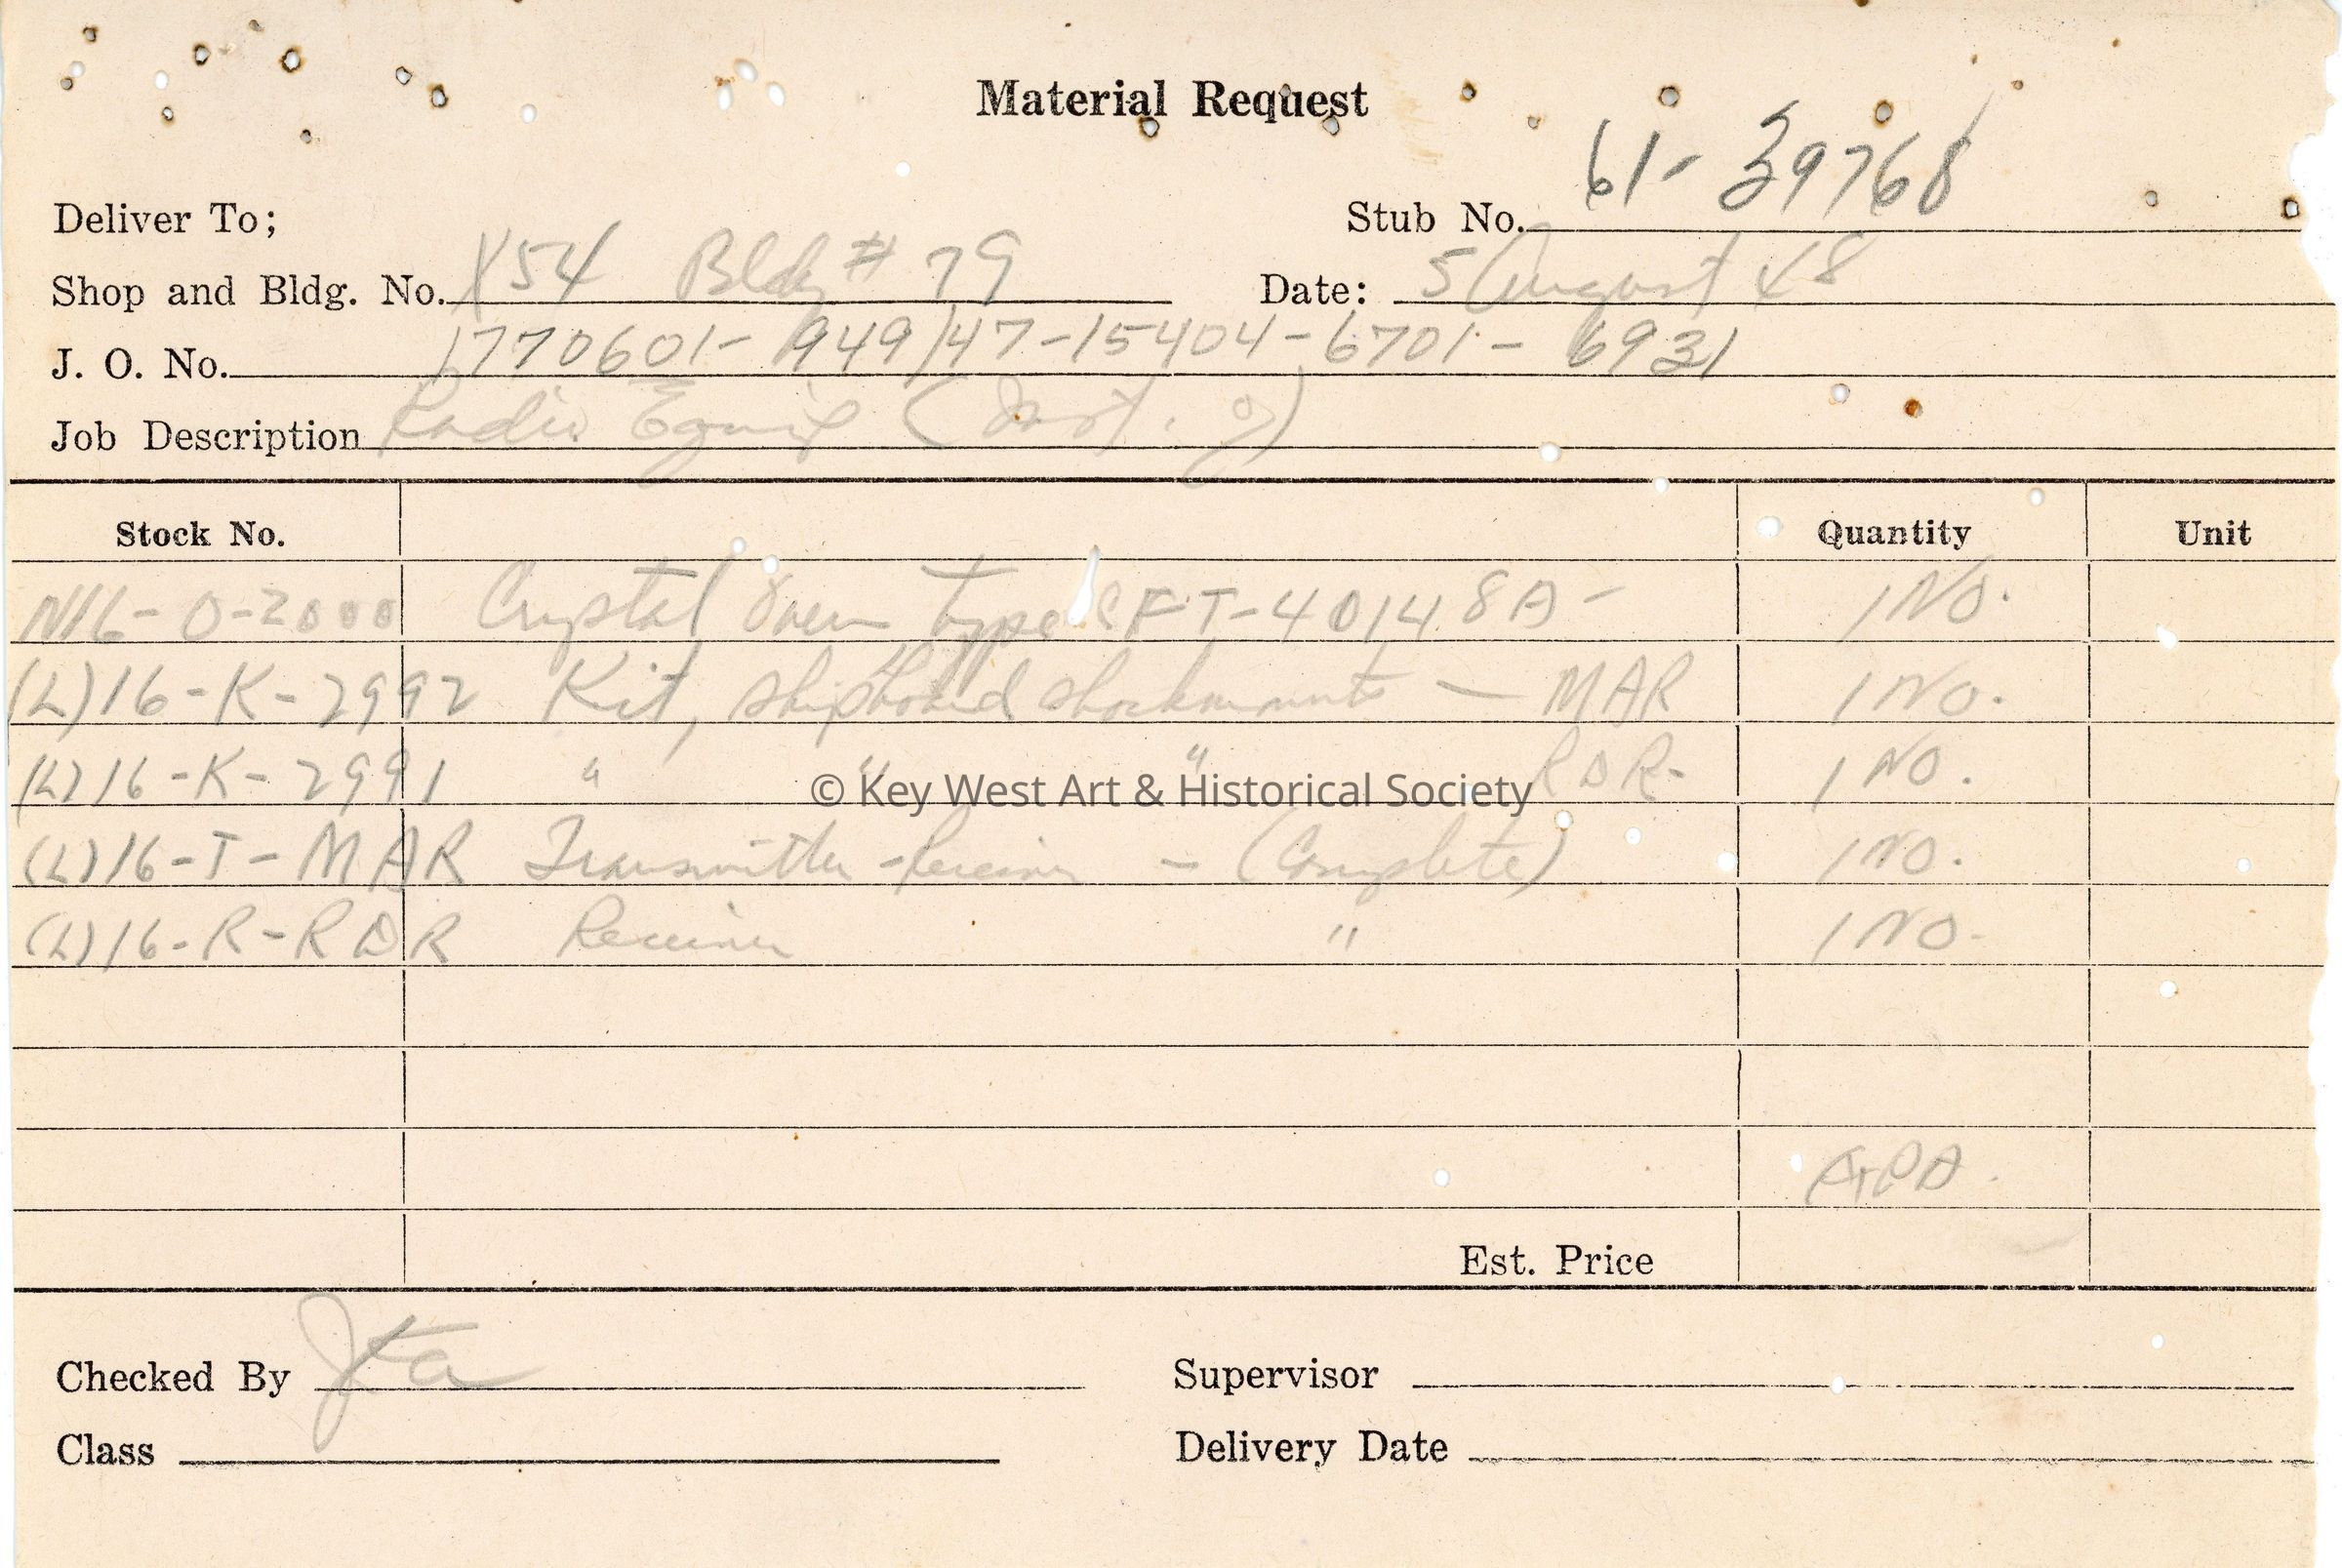 Material Request
Deliver To;
Stub No. 61-39768
Shop and Bldg. No. X54 Bldg # 79 Date: 5 August 48
J. O. No. 1770601-949/47-15404-6701-6931
Job Description Radio Equip
Stock No. Quantity Unit
N16-O-2000 Crystal Oven type CFT-40148A- 1 NO.
(L)16-K-2992 Kit, shipboard shockmounts - MAR 1 NO.
(L)16-K-2991 " " " RDR- 1 NO.
© Key West Art & Historical Society
(L)16-T-MAR Transmitter-Receiver - (Complete) 1 NO.
(L)16-R-RDR Receiver " 1 NO.
Est. Price
Checked By Supervisor
Class Delivery Date